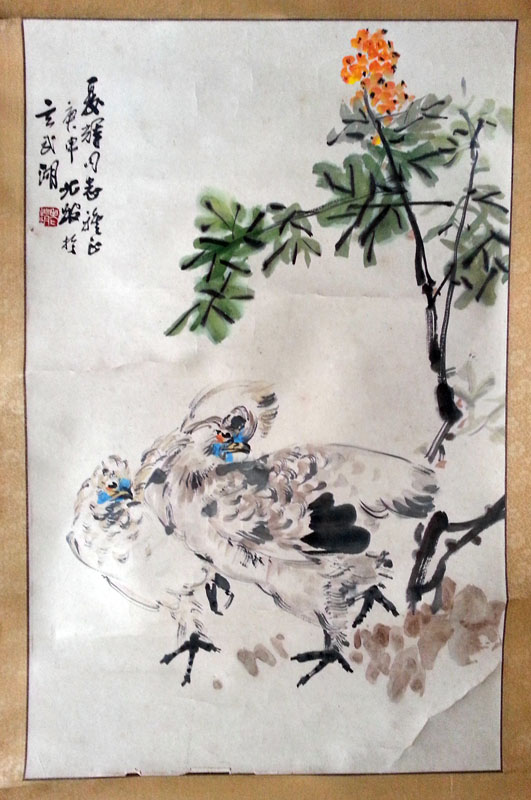 夏辉同志雅正
庚申 北 於
玄武湖